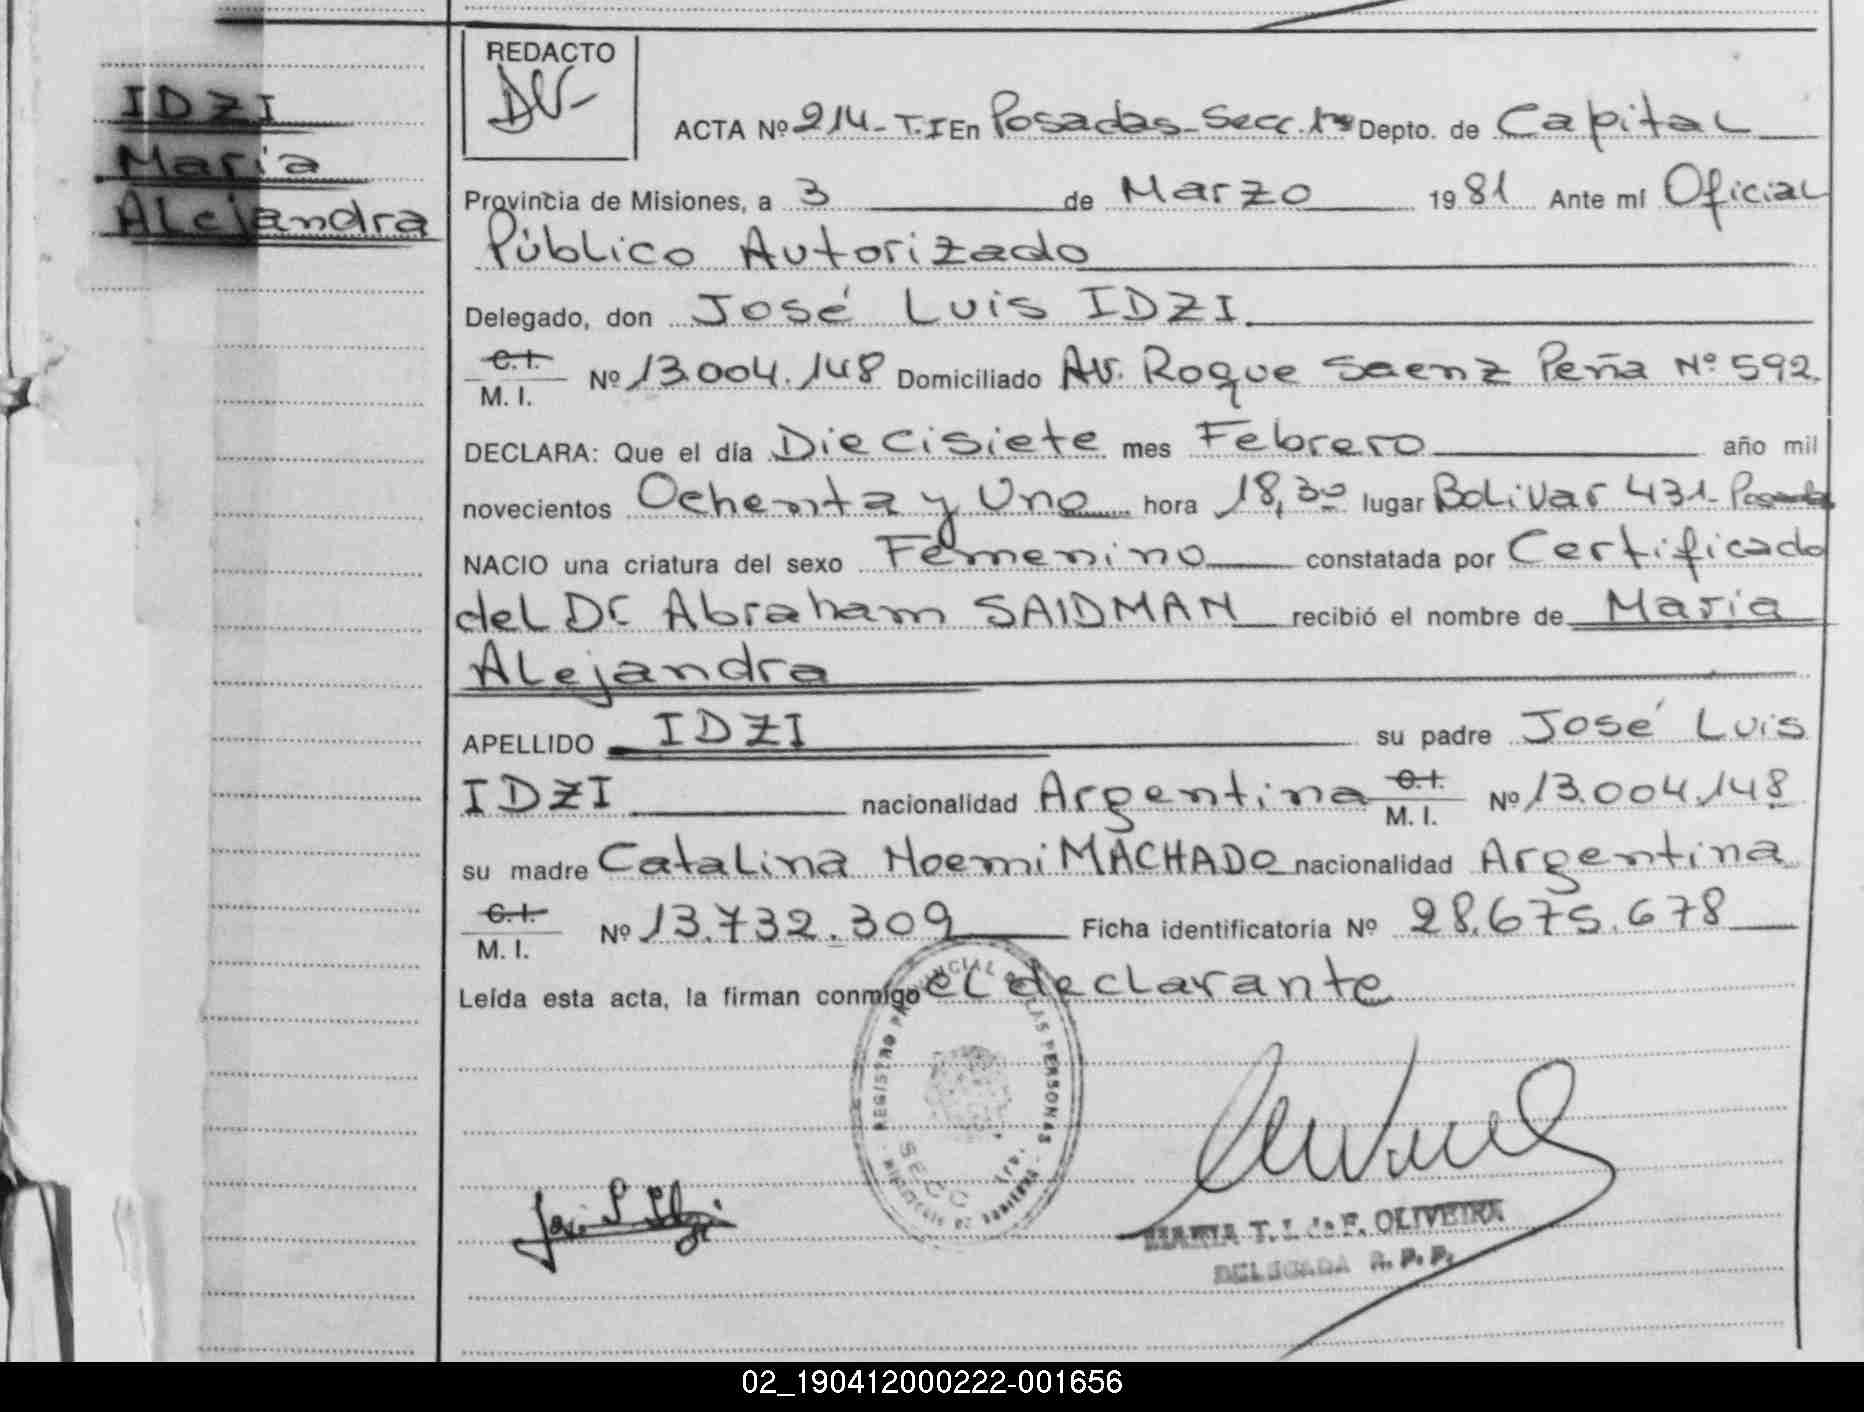 IDZI
Maria
Alejandra
REDACTO
ACTA Nº 214-T.I En Posadas-Secc.1ra Depto. de Capital
Provincia de Misiones, a 3 de Marzo 1981 Ante mí Oficial
Público Autorizado
Delegado, don José Luis IDZI
C.I.
M. I. Nº 13.004.148 Domiciliado Av. Roque Saenz Peña Nº 592
DECLARA: Que el día Diecisiete mes Febrero año mil
novecientos Ochenta y Uno hora 18,30 lugar Bolivar 431-Posadas
NACIO una criatura del sexo Femenino constatada por Certificado
del Dr Abraham SAIDMAN recibió el nombre de Maria
Alejandra
APELLIDO IDZI su padre José Luis
IDZI nacionalidad Argentina C.I. M. I. Nº 13.004.148
su madre Catalina Noemi MACHADO nacionalidad Argentina
C.I.
M. I. Nº 13.732.309 Ficha identificatoria Nº 28.675.678
Leída esta acta, la firman conmigo el declarante
REGISTRO PROVINCIAL DE LAS PERSONAS
SECC 1ra.
MARIA T. I. de F. OLIVEIRA
DELEGADA R. P. P.
02_190412000222-001656